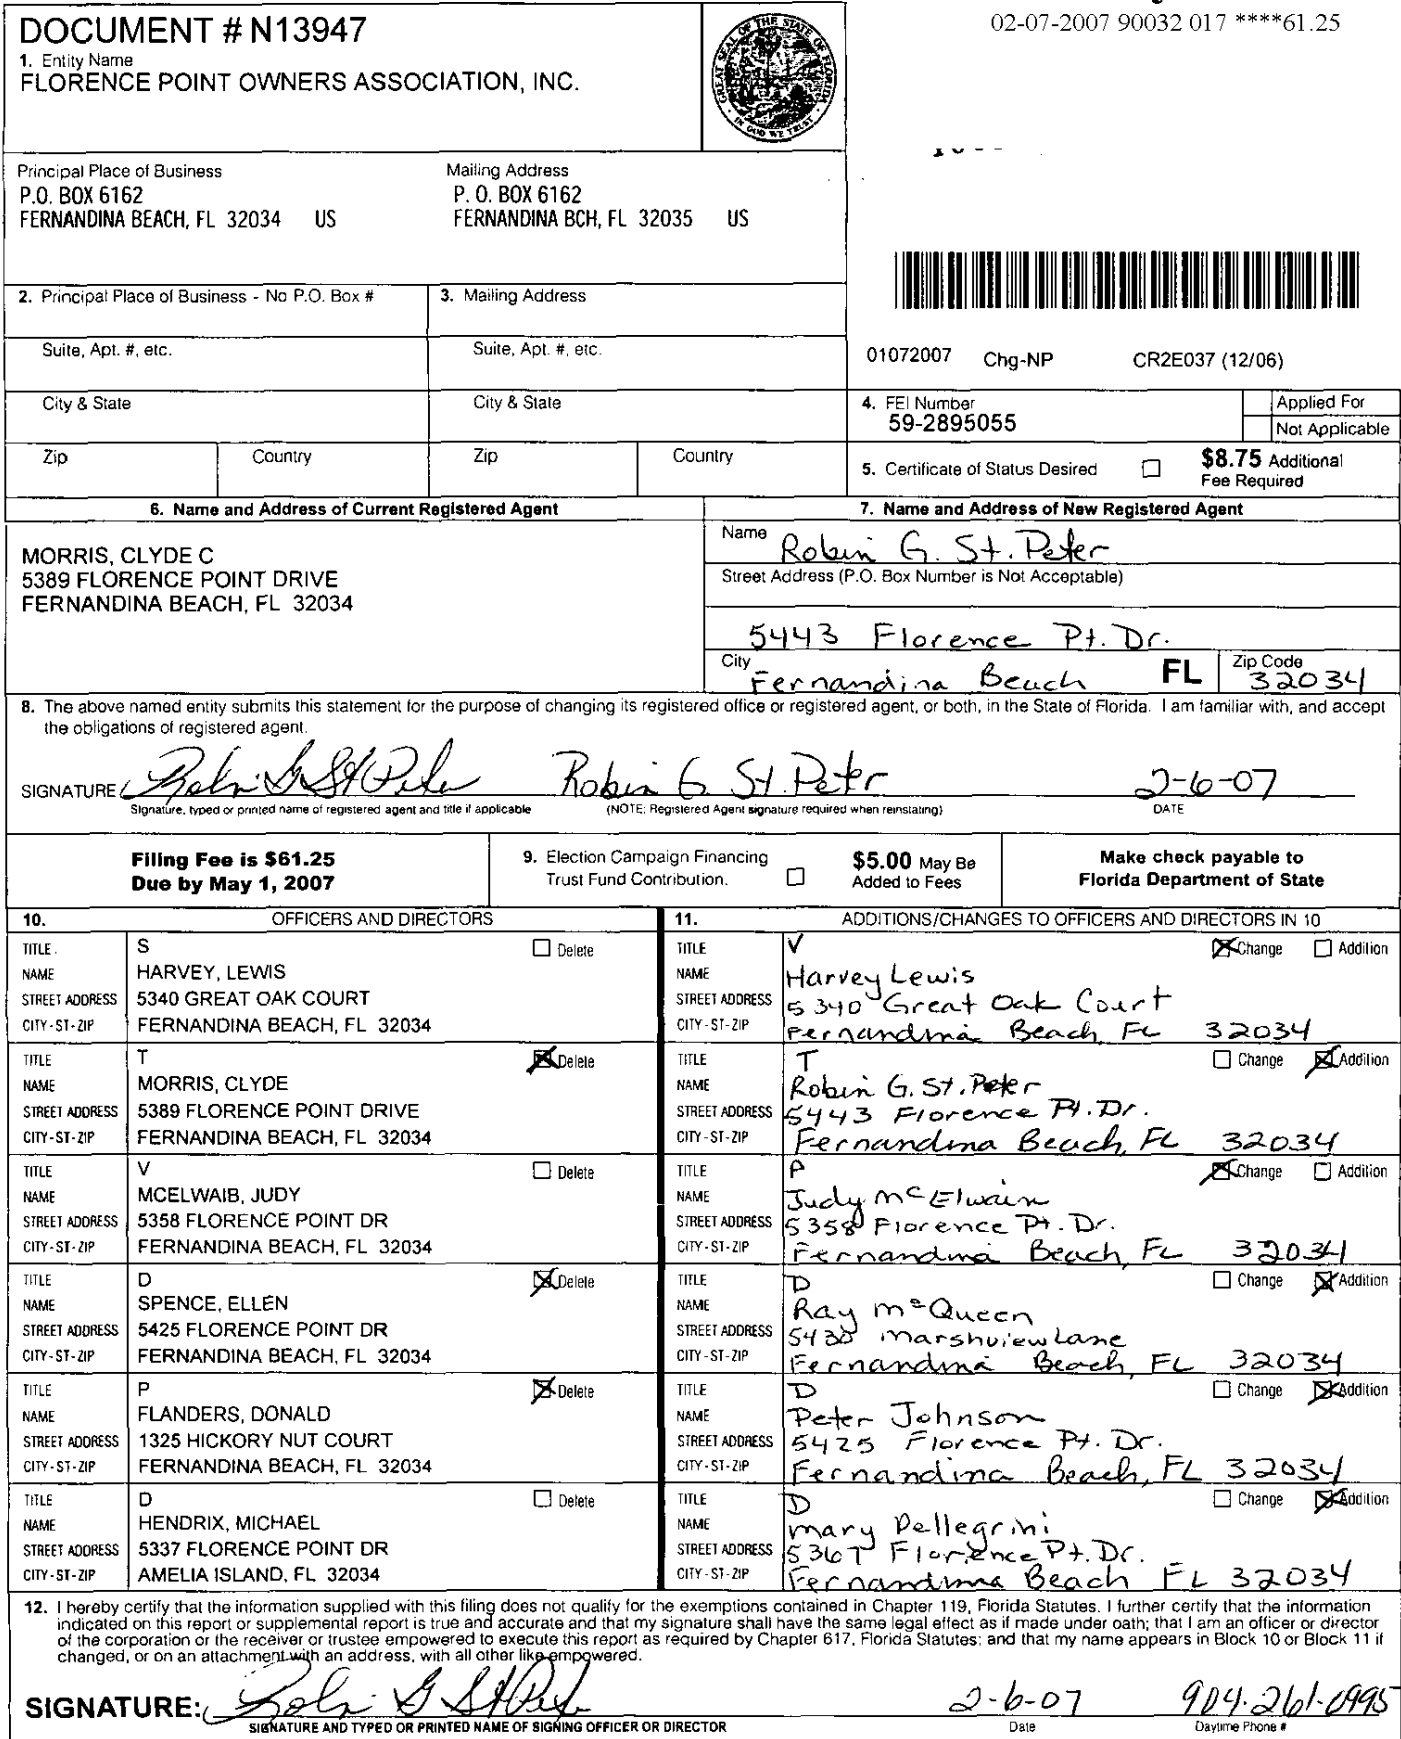 DOCUMENT # N13947
02-07-2007 90032 017 ****61.25
1. Entity Name
FLORENCE POINT OWNERS ASSOCIATION, INC.
GREAT SEAL OF THE STATE OF FLORIDA
IN GOD WE TRUST
Principal Place of Business
P.O. BOX 6162
FERNANDINA BEACH, FL 32034 US
Mailing Address
P. O. BOX 6162
FERNANDINA BCH, FL 32035 US
2. Principal Place of Business - No P.O. Box #
3. Mailing Address
Suite, Apt. #, etc.
Suite, Apt. #, etc.
01072007 Chg-NP CR2E037 (12/06)
City & State
City & State
4. FEI Number
59-2895055
Applied For
Not Applicable
Zip Country
Zip Country
5. Certificate of Status Desired
$8.75 Additional
Fee Required
6. Name and Address of Current Registered Agent
MORRIS, CLYDE C
5389 FLORENCE POINT DRIVE
FERNANDINA BEACH, FL 32034
7. Name and Address of New Registered Agent
Name Robin G. St. Peter
Street Address (P.O. Box Number is Not Acceptable)
5443 Florence Pt. Dr.
City Fernandina Beach FL Zip Code 32034
8. The above named entity submits this statement for the purpose of changing its registered office or registered agent, or both, in the State of Florida. I am familiar with, and accept
the obligations of registered agent.
SIGNATURE Robin G St Peter Robin G St. Peter 2-6-07
Signature, typed or printed name of registered agent and title if applicable (NOTE: Registered Agent signature required when reinstating) DATE
Filing Fee is $61.25
Due by May 1, 2007
9. Election Campaign Financing
Trust Fund Contribution.
$5.00 May Be
Added to Fees
Make check payable to
Florida Department of State
10. OFFICERS AND DIRECTORS
TITLE S Delete
NAME HARVEY, LEWIS
STREET ADDRESS 5340 GREAT OAK COURT
CITY-ST-ZIP FERNANDINA BEACH, FL 32034
TITLE T Delete
NAME MORRIS, CLYDE
STREET ADDRESS 5389 FLORENCE POINT DRIVE
CITY-ST-ZIP FERNANDINA BEACH, FL 32034
TITLE V Delete
NAME MCELWAIB, JUDY
STREET ADDRESS 5358 FLORENCE POINT DR
CITY-ST-ZIP FERNANDINA BEACH, FL 32034
TITLE D Delete
NAME SPENCE, ELLEN
STREET ADDRESS 5425 FLORENCE POINT DR
CITY-ST-ZIP FERNANDINA BEACH, FL 32034
TITLE P Delete
NAME FLANDERS, DONALD
STREET ADDRESS 1325 HICKORY NUT COURT
CITY-ST-ZIP FERNANDINA BEACH, FL 32034
TITLE D Delete
NAME HENDRIX, MICHAEL
STREET ADDRESS 5337 FLORENCE POINT DR
CITY-ST-ZIP AMELIA ISLAND, FL 32034
11. ADDITIONS/CHANGES TO OFFICERS AND DIRECTORS IN 10
TITLE V Change Addition
NAME Harvey Lewis
STREET ADDRESS 5340 Great Oak Court
CITY-ST-ZIP Fernandina Beach, FL 32034
TITLE T Change Addition
NAME Robin G. St. Peter
STREET ADDRESS 5443 Florence Pt. Dr.
CITY-ST-ZIP Fernandina Beach, FL 32034
TITLE P Change Addition
NAME Judy McElwain
STREET ADDRESS 5358 Florence Pt. Dr.
CITY-ST-ZIP Fernandina Beach, FL 32034
TITLE D Change Addition
NAME Ray McQueen
STREET ADDRESS Marshview Lane
CITY-ST-ZIP Fernandina Beach, FL 32034
TITLE D Change Addition
NAME Peter Johnson
STREET ADDRESS 5425 Florence Pt. Dr.
CITY-ST-ZIP Fernandina Beach, FL 32034
TITLE D Change Addition
NAME Mary Pellegrini
STREET ADDRESS 5367 Florence Pt. Dr.
CITY-ST-ZIP Fernandina Beach FL 32034
12. I hereby certify that the information supplied with this filing does not qualify for the exemptions contained in Chapter 119, Florida Statutes. I further certify that the information
indicated on this report or supplemental report is true and accurate and that my signature shall have the same legal effect as if made under oath; that I am an officer or director
of the corporation or the receiver or trustee empowered to execute this report as required by Chapter 617, Florida Statutes; and that my name appears in Block 10 or Block 11 if
changed, or on an attachment with an address, with all other like empowered.
SIGNATURE: Robin G St Peter 2-6-07 904-261-0995
SIGNATURE AND TYPED OR PRINTED NAME OF SIGNING OFFICER OR DIRECTOR Date Daytime Phone #